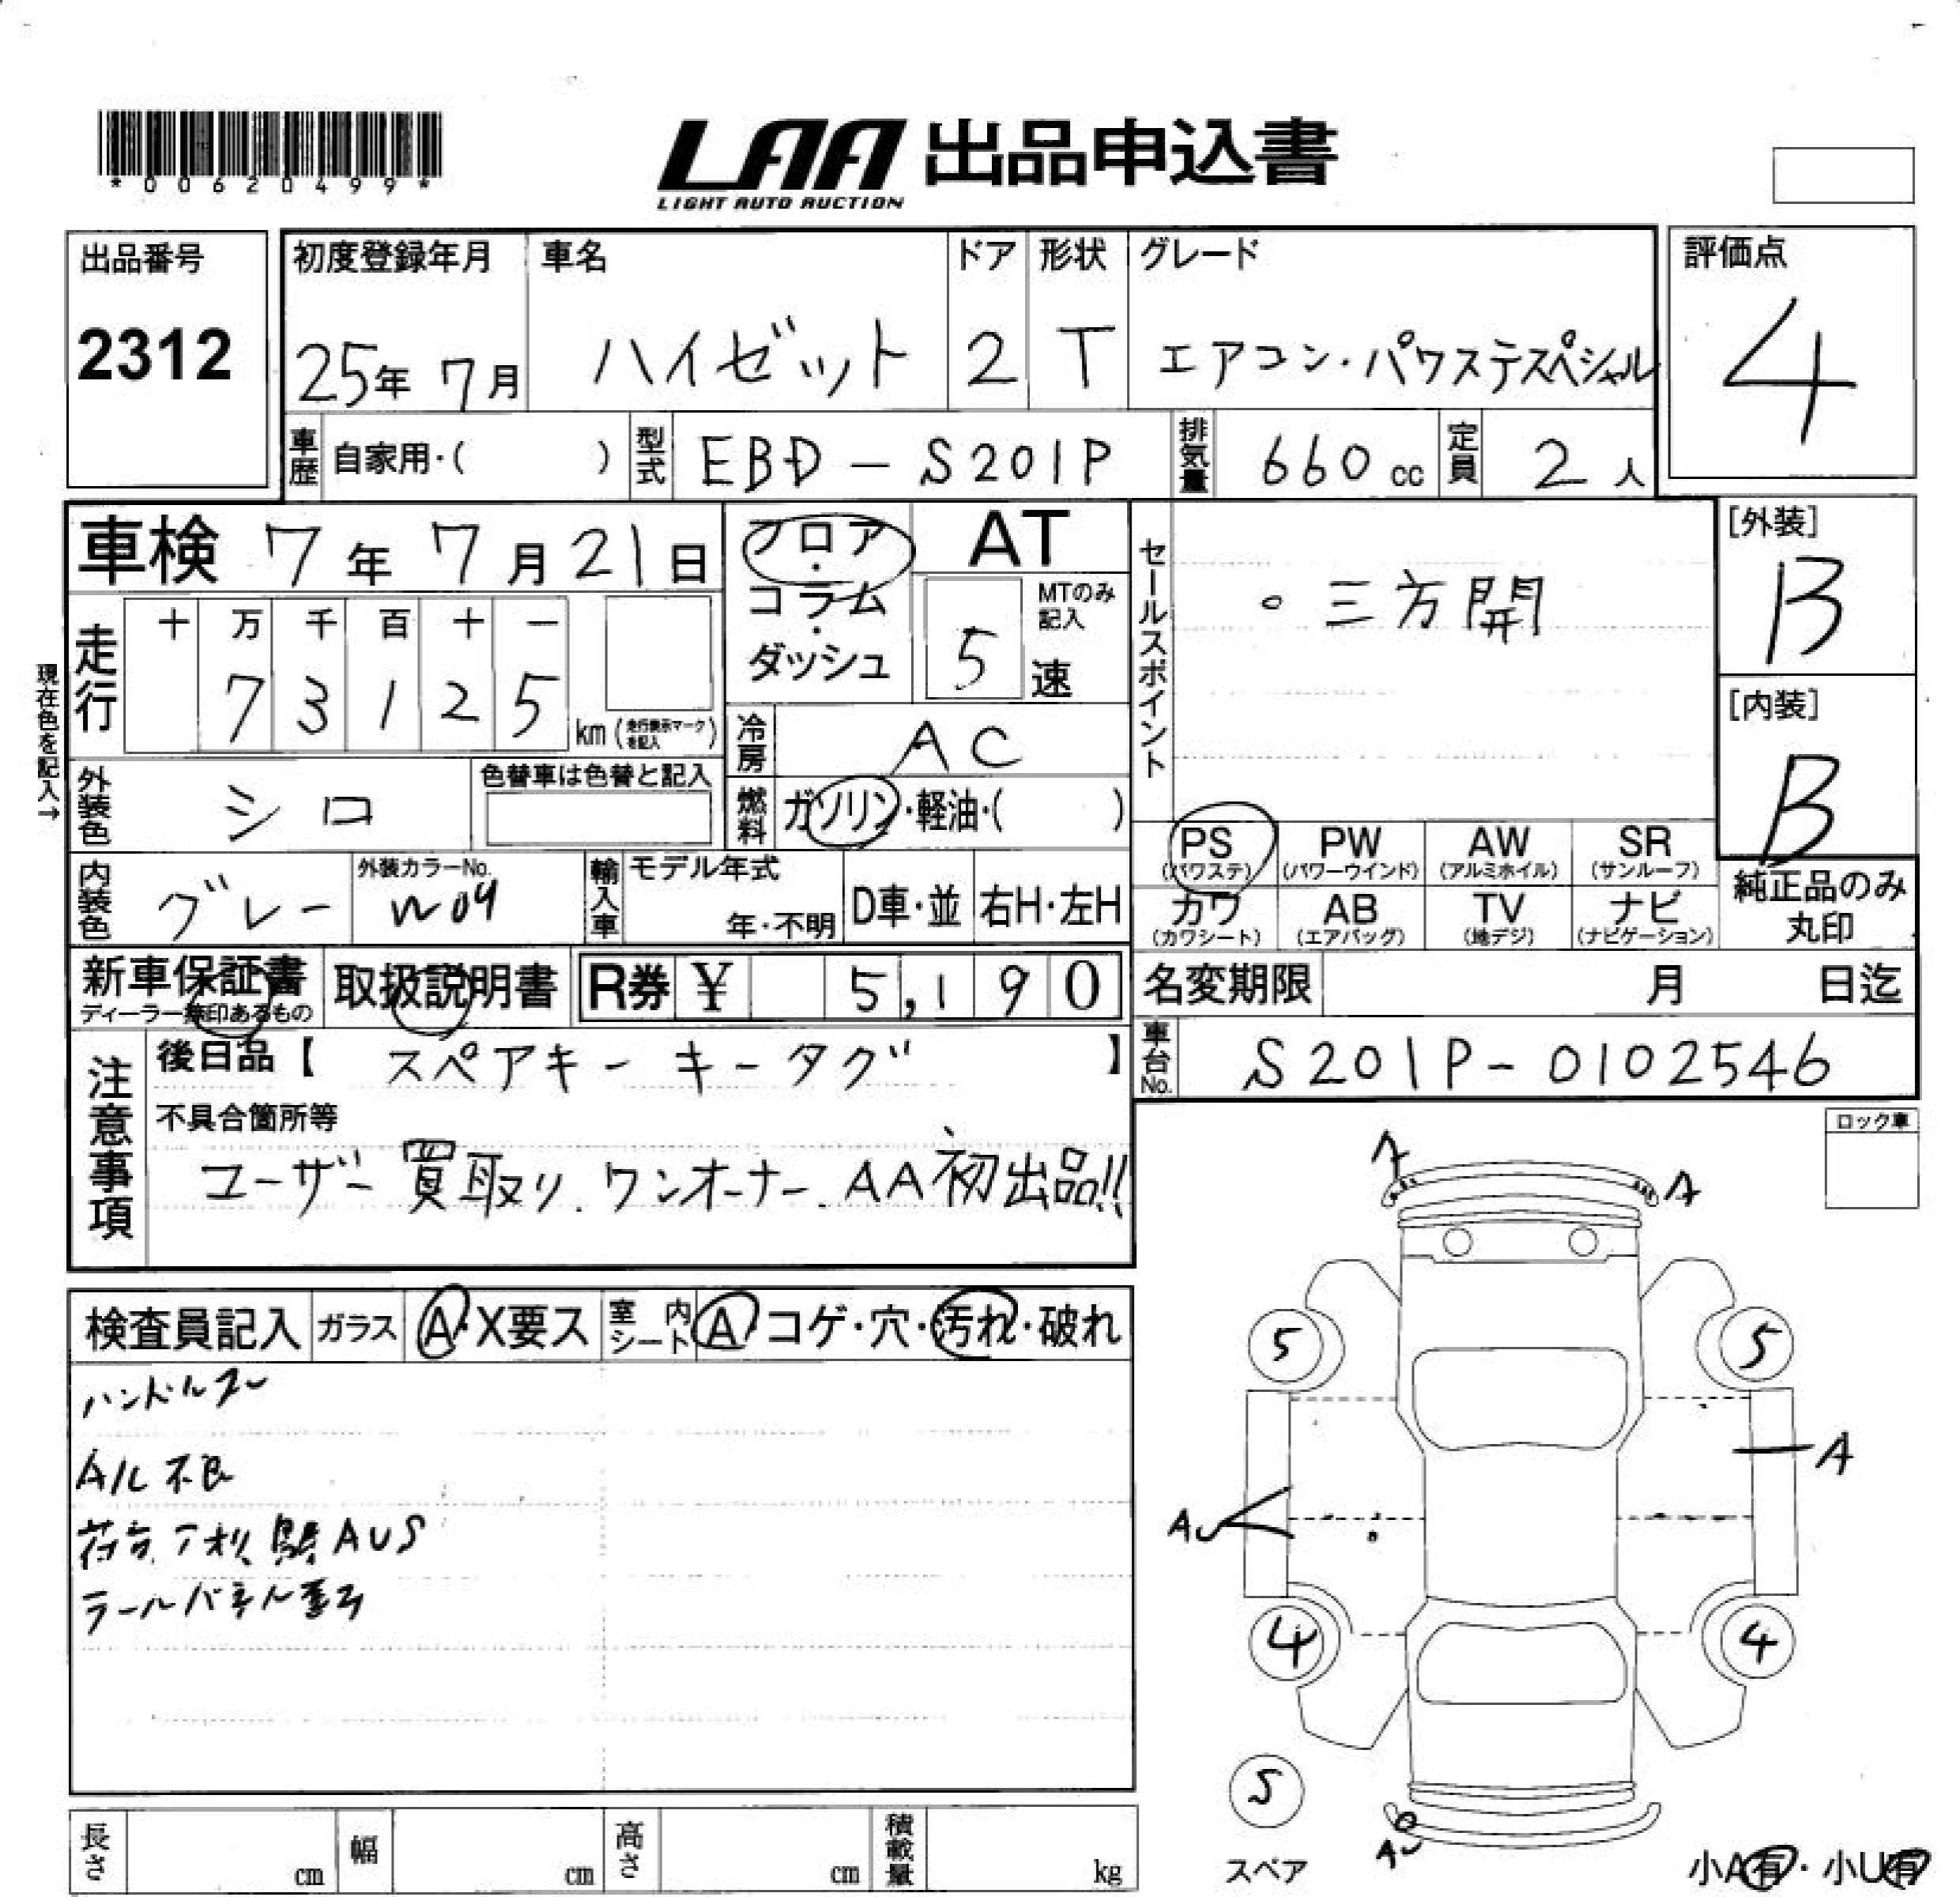 *00620499*
LAA 出品申込書
LIGHT AUTO AUCTION
出品番号
2312
初度登録年月 車名 ドア 形状 グレード
25年 7月 ハイゼット 2 T エアコン・パワステスペシャル
評価点
4
車歴 自家用・( ) 型式 EBD-S201P 排気量 660cc 定員 2人
車検 7年 7月 21日
フロア・コラム・ダッシュ
AT
MTのみ記入
5速
走行 十 万 千 百 十 一
7 3 1 2 5 km (走行表示マークを記入)
現在色を記入→
冷房 AC
外装色 シロ 色替車は色替と記入
燃料 ガソリン・軽油・( )
内装色 グレー 外装カラーNo. W09
輸入車 モデル年式 年・不明 D車・並 右H・左H
セールスポイント
。三方開
[外装]
B
[内装]
B
PS (パワステ) PW (パワーウインド) AW (アルミホイル) SR (サンルーフ)
カワ (カワシート) AB (エアバッグ) TV (地デジ) ナビ (ナビゲーション)
純正品のみ丸印
新車保証書 取扱説明書 R券 ¥ 5,190
名変期限 月 日迄
車台No. S201P-0102546
注意事項
後日品【 スペアキー キータグ 】
不具合箇所等
ユーザー買取り.ワンオーナー.AA初出品!!
ロック車
検査員記入 ガラス A・X要ス 室内シート A・コゲ・穴・汚れ・破れ
ハンドルスレ
A/L不良
AUS
A A
5 5
A
AU
4 4
5
スペア
AU
小A有・小U有
長さ cm 幅 cm 高さ cm 積載量 kg